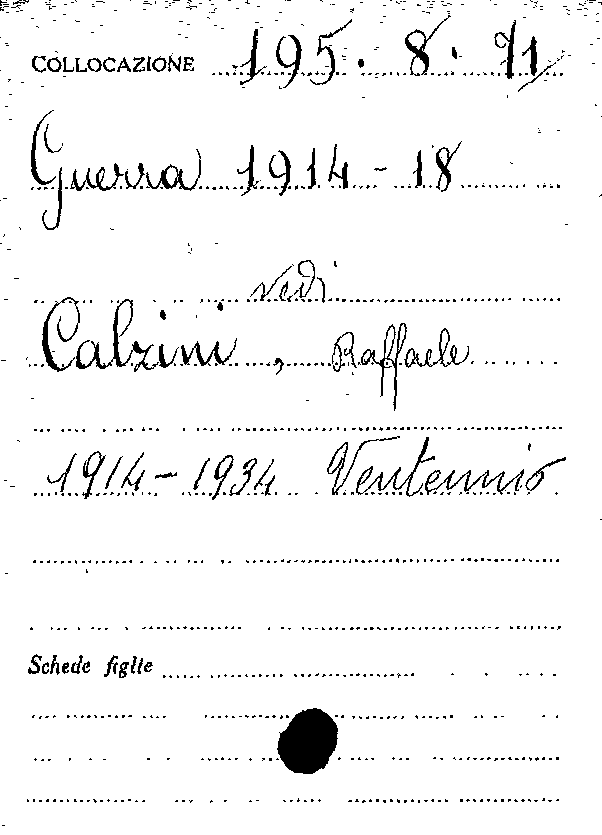 COLLOCAZIONE 195. 8. 71
Guerra 1914-18
vedi
Calzini, Raffaele
1914-1934 Ventennio
Schede figlie